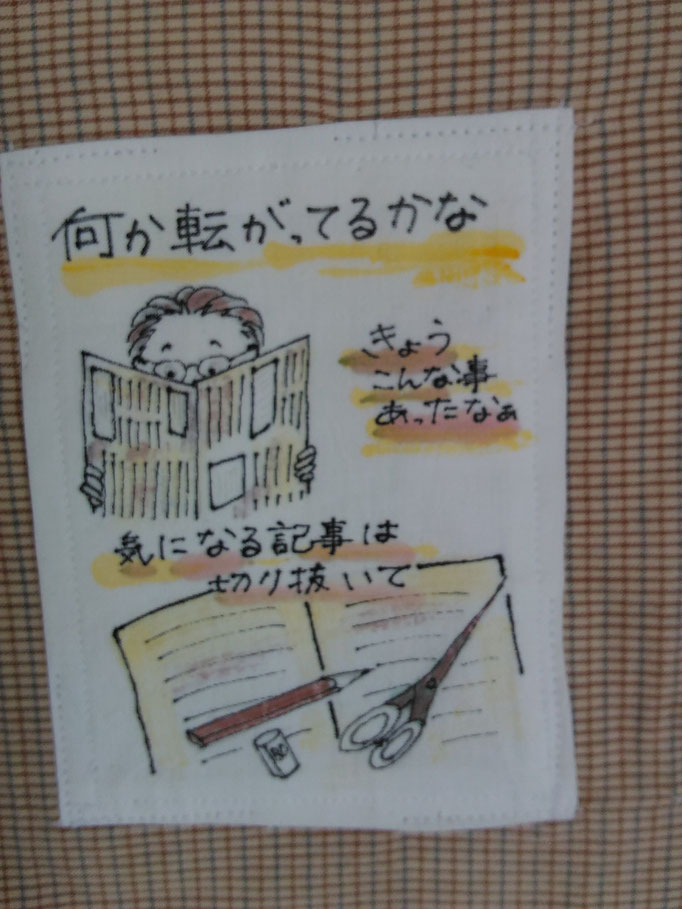 何か転がってるかな
きょう
こんな事
あったなぁ
気になる記事は
切り抜いて